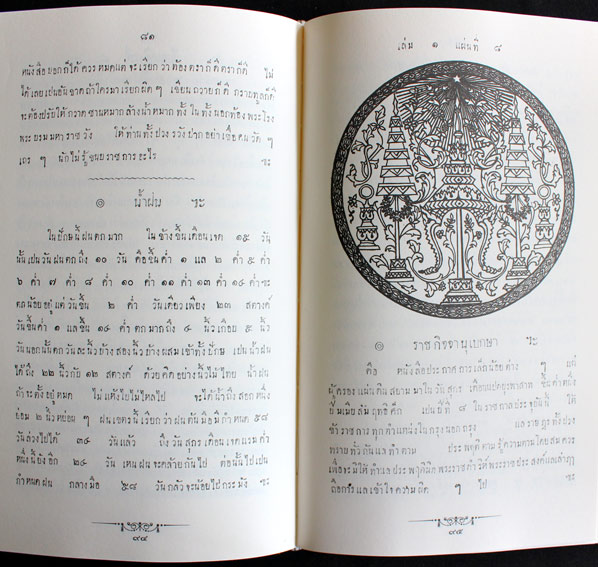 ๘๑
หนังสือ บอก ก็ ได้ ควร หมด แต่ จะ เรียก ว่า ต้อง ตรา ก็ ดี ตรา ก็ ดี ไม่
ได้ เลย เปน อัน ขาด ถ้า ใคร มา เรียก ผิด ๆ เขียน ถวาย ก็ ดี กราบ ทูล ก็ ดี
จะ ต้อง ปรับ ให้ กวาด ชาน หมาก ล้าง น้ำ หมาก ทั้ง ใน ทั้ง นอก ท้อง พระ โรง
พระ บรม มหา ราช วัง ให้ ท่าน ทั้ง ปวง ระวัง ปาก อย่า เชื่อ คน วัด ๆ
เถร ๆ นัก ไม่ รู้ ขนบ ราชการ อะไร ฯะ
๏ น้ำ ฝน ฯะ
ใน ปัก นี้ ฝน ตก มาก ใน ข้าง ขึ้น เดือน เจด ๑๕ วัน
นั้น เปน วัน ฝน ตก ถึง ๑๐ วัน คือ ขึ้น ค่ำ ๑ แล ๒ ค่ำ ๕ ค่ำ
๖ ค่ำ ๗ ค่ำ ๘ ค่ำ ๑๐ ค่ำ ๑๑ ค่ำ ๑๓ ค่ำ ๑๔ ค่ำ ฯะ
ตก น้อย อยู่ แต่ วัน ขึ้น ๒ ค่ำ วัน เดียว เพียง ๒๓ สตางค์
วัน ขึ้น ค่ำ ๑ แล ขึ้น ๑๔ ค่ำ ตก มาก ถึง ๔ นิ้ว เกือบ ๕ นิ้ว
วัน นอก นั้น ตก วัน ละ นิ้ว บ้าง สอง นิ้ว บ้าง ผสม เข้า ทั้ง ปักษ เปน น้ำ ฝน
ได้ ถึง ๒๒ นิ้ว กับ ๑๒ สตางค์ ด้วย คิด อย่าง นิ้ว ไม้ ไทย น้ำ ฝน
ถ้า จะ ตั้ง อยู่ หมด ไม่ แห้ง ไป ไม่ ไหล ไป จะ ได้ น้ำ ถึง สอก หนึ่ง
ย่อม ๒ นิ้ว หย่อน ๆ ฝน เขตร นี้ เรียก ว่า ฝน ต้น มือ มี กำหนด ๕๘
วัน ล่วง ไป ได้ ๓๔ วัน แล้ว ถึง วัน สุกร เดือน เจด แรม ค่ำ
หนึ่ง นี้ ยัง อีก ๒๔ วัน เหน ฝน จะ คล้าย กัน ไป ต่อ นั้น ไป เปน
กำหนด ฝน กลาง มือ ๕๘ วัน กลัว จะ น้อย ไป กระมัง ฯะ
๙๔
เล่ม ๑ แผ่น ที่ ๘
๏ ราชกิจจานุเบกษา ฯะ
คือ หนังสือ ประกาศ การ เล็ก น้อย ต่าง ๆ แผ่
ผู้ ครอง แผ่นดิน สยาม มา ใน วัน สุกร
เปน ปี ที่ ๘ ใน ราชกาล ประจุบัน นี้ ให้
ข้า ราชการ ทุก ตำแหน่ง ใน กรุง นอก กรุง แล ราษฎร ทั้ง ปวง
ทราบ ทั่ว กัน แล ทำ ตาม ประพฤติ ตาม รู้ ความ ตาม โดย สมควร
เพื่อ จะ มิ ให้
ถือ การ แล เข้า ใจ ความ ผิด ๆ ไป ฯะ
๙๕